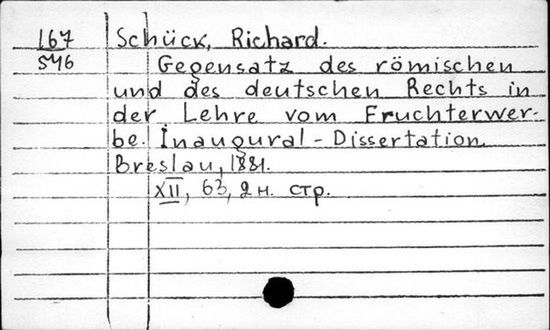 167 Schück, Richard.
546 Gegensatz des römischen
und des deutschen Rechts in
der Lehre vom Fruchterwer-
be. Inaugural-Dissertation.
Breslau, 1881.
XII, 63, 2 н. стр.